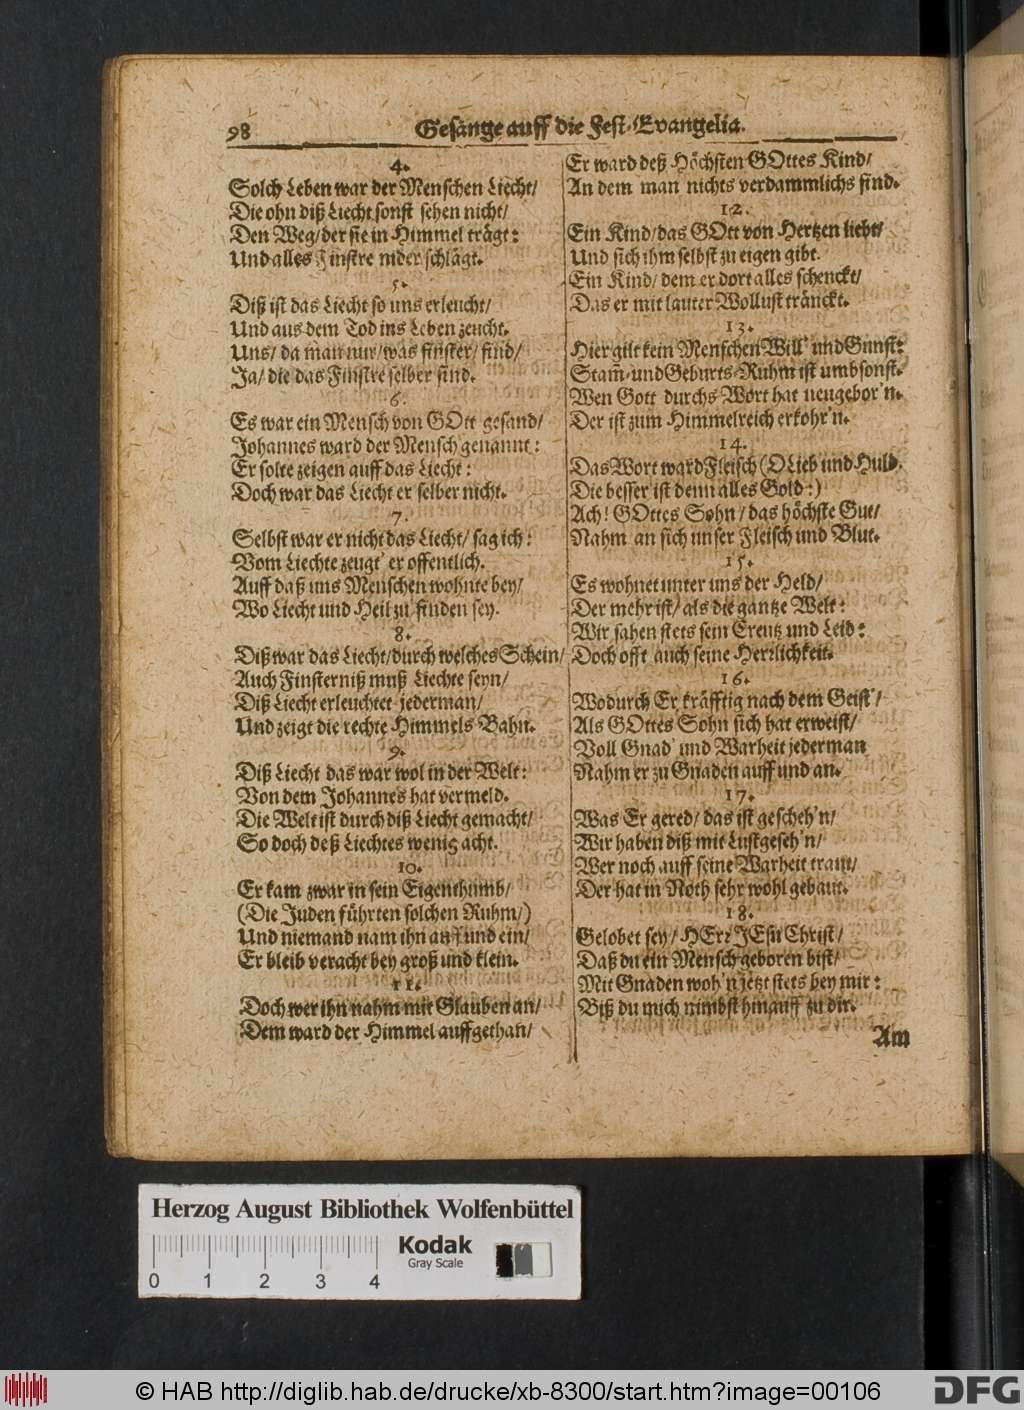 98
Gesänge auff die Fest-Evangelia.
4.
Solch Leben war der Menschen Liecht/
Die ohn diß Liecht sonst sehen nicht/
Den Weg/ der sie in Himmel trägt:
Und alles Finstre nider schlägt.
5.
Diß ist das Liecht so uns erleucht/
Und aus dem Tod ins Leben zeucht.
Uns/ da man nur/ was finster/ find/
Ja/ die das Finstre selber sind.
6.
Es war ein Mensch von GOtt gesand/
Johannes ward der Mensch genannt:
Er solte zeigen auff das Liecht:
Doch war das Liecht er selber nicht.
7.
Selbst war er nicht das Liecht/ sag ich:
Vom Liechte zeugt' er offentlich.
Auff daß uns Menschen wohnte bey/
Wo Liecht und Heil zu finden sey.
8.
Diß war das Liecht/ durch welches Schein/
Auch Finsterniß muß Liechte seyn/
Diß Liecht erleuchtet jederman/
Und zeigt die rechte Himmels Bahn.
9.
Diß Liecht das war wol in der Welt:
Von dem Johannes hat vermeld.
Die Welt ist durch diß Liecht gemacht/
So doch deß Liechtes wenig acht.
10.
Er kam zwar in sein Eigenthumb/
(Die Juden führten solchen Ruhm/)
Und niemand nam ihn auff und ein/
Er bleib veracht bey groß und klein.
11.
Doch wer ihn nahm mit Glauben an/
Dem ward der Himmel auffgethan/
Er ward deß Höchsten GOttes Kind/
An dem man nichts verdammlichs find.
12.
Ein Kind/ das GOtt von Hertzen liebt/
Und sich ihm selbst zu eigen gibt.
Ein Kind/ dem er dort alles schenckt/
Das er mit lauter Wollust tränckt.
13.
Hier gilt kein Menschen Will' und Gunst:
Stam̃- und Geburts-Ruhm ist umbsonst.
Wen Gott durchs Wort hat neugebor'n.
Der ist zum Himmelreich erkohr'n.
14.
Das Wort ward Fleisch (O Lieb und Huld.
Die besser ist denn alles Gold:)
Ach! GOttes Sohn/ das höchste Gut/
Nahm an sich unser Fleisch und Blut.
15.
Es wohnet unter uns der Held/
Der mehr ist/ als die gantze Welt:
Wir sahen stets sein Creutz und Leid:
Doch offt auch seine Herrlichkeit.
16.
Wodurch Er kräfftig nach dem Geist'/
Als GOttes Sohn sich hat erweist/
Voll Gnad' und Warheit jederman
Nahm er zu Gnaden auff und an.
17.
Was Er gered/ das ist gescheh'n/
Wir haben diß mit Lust geseh'n/
Wer noch auff seine Warheit traut/
Der hat in Noth sehr wohl gebaut.
18.
Gelobet sey/ HErr JEsu Christ/
Daß du ein Mensch geboren bist/
Mit Gnaden woh'n jetzt stets bey mir:
Biß du mich nimbst hinauff zu dir.
Am
Herzog August Bibliothek Wolfenbüttel
Kodak
Gray Scale
0 1 2 3 4
© HAB http://diglib.hab.de/drucke/xb-8300/start.htm?image=00106
DFG